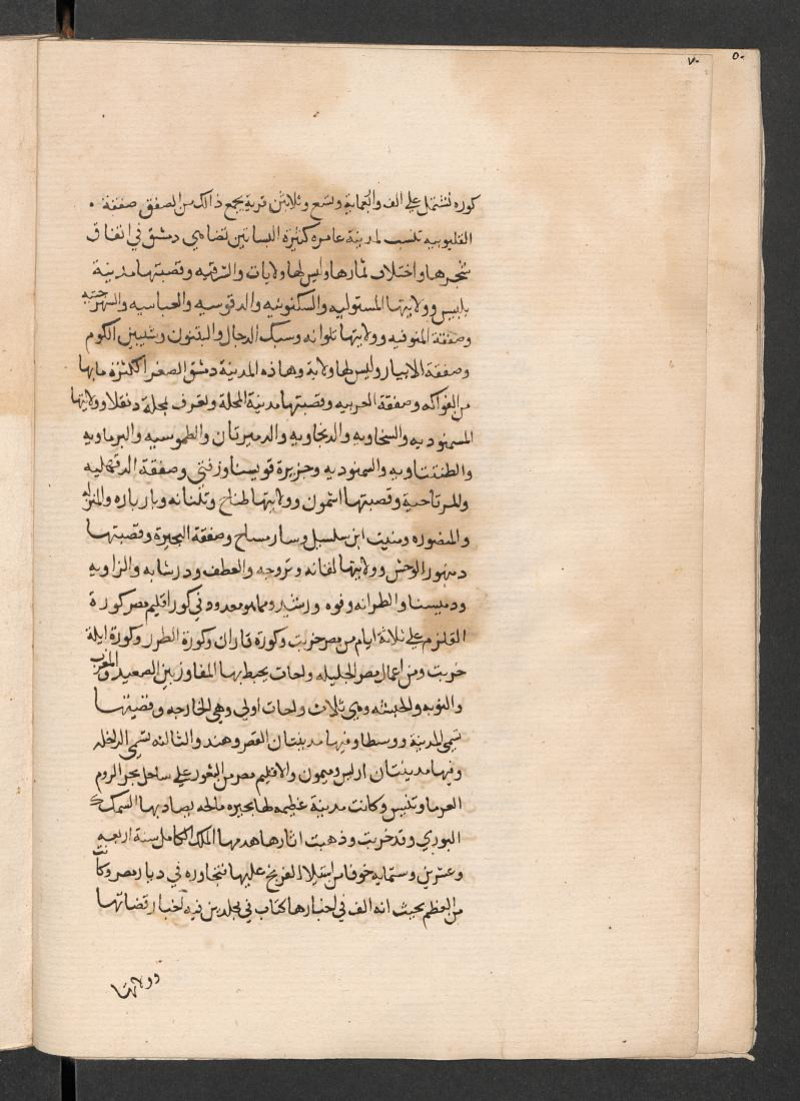 ٧٠ ٥٠
كوره تشتمل على الف واربعماية وتسع وثلاثين قرية يجمع ذالك من الصفق صفقة
القليوبيه تنسب لمدينة عامره كثيرة البساتين تضاهي دمشق في اتفاق
شجرها واختلاف ثمارها وليس لها ولايات والشرقيه وقصبتها مدينة
بلبيس وولايتها المستوليه والسكنوتيه والدقوسيه والعباسيه والصهرجتيه
وصفقة المنوفيه وولايتها تلوانه وسبك الدجال والبتنون وشيبين الكوم
وصفقة الابيار وليس لها ولاية وهاذه المدينة دمشق الصغرا لكثرة ما بها
من الفواكه وصفقة الغربيه وقصبتها مدينة المحلة وتعرف بمحلة دنقلا وولايتها
السمنوديه والسخاويه والدنجاويه والدميرتان والطموسيه والبرماويه
والطنتتاويه والسمنوديه وجزيرة قويسنا وزفتى وصفقة الدقهليه
والمرتاحية وقصبتها اشمون وولايتها طناح وتلنانه وباربارة والمنزله
والمنصوره ومنيت ابن سلسبل وسارمساح وصفقة البحيرة وقصبتها
دمنهور الوحش وولايتها لقانه وتروجه والعطف ودرشابه والزاويه
ودميسنا والطرانه وفوه ورشيد ومما هو معدود في كور اقليم مصر كورة
القلزم على ثلاثة ايام من مصر خربت وكورة فاران وكورة الطور وكورة ايلة
خربت ومن اعمال مصر الجليله واحات يحيط بها المفاوز بين الصعيد والمغرب
والنوبه والحبشه وهي ثلاث واحات اولى وهي الخارجه وقصبتها
تسمى المدينة ووسطا وفيها مدينتان القصر وهند والثالثه تسمى الداخله
وفيها مدينتان اريس وميمون والاقليم مصر من الثغور على ساحل بحر الروم
الفرما وتنيس وكانت مدينة عظيمه لها بحيره مالحه يصاد بها السمك
البوري وقد خربت وذهبت اثارها هدمها الملك الكامل سنة اربعه
وعشرين وستمايه خوفا من استيلاء الفرنج عليها فتجاوره في ديار مصر وكانت
من العظم بحيث انه الف في اخبارها كتاب في مجلدين فيه اخبار قضاتها
وولاتها